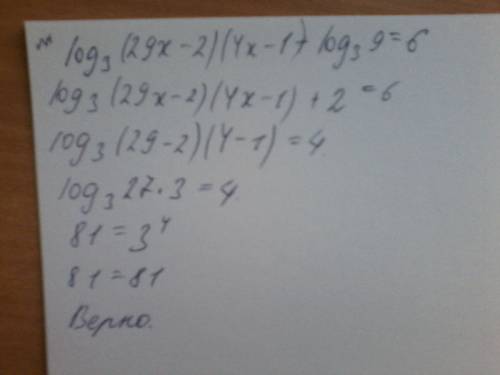 log₃(29x-2)(4x-1)+log₃9=6
log₃(29x-2)(4x-1)+2=6
log₃(29-2)(4-1)=4
log₃27·3=4
81=3⁴
81=81
Верно.